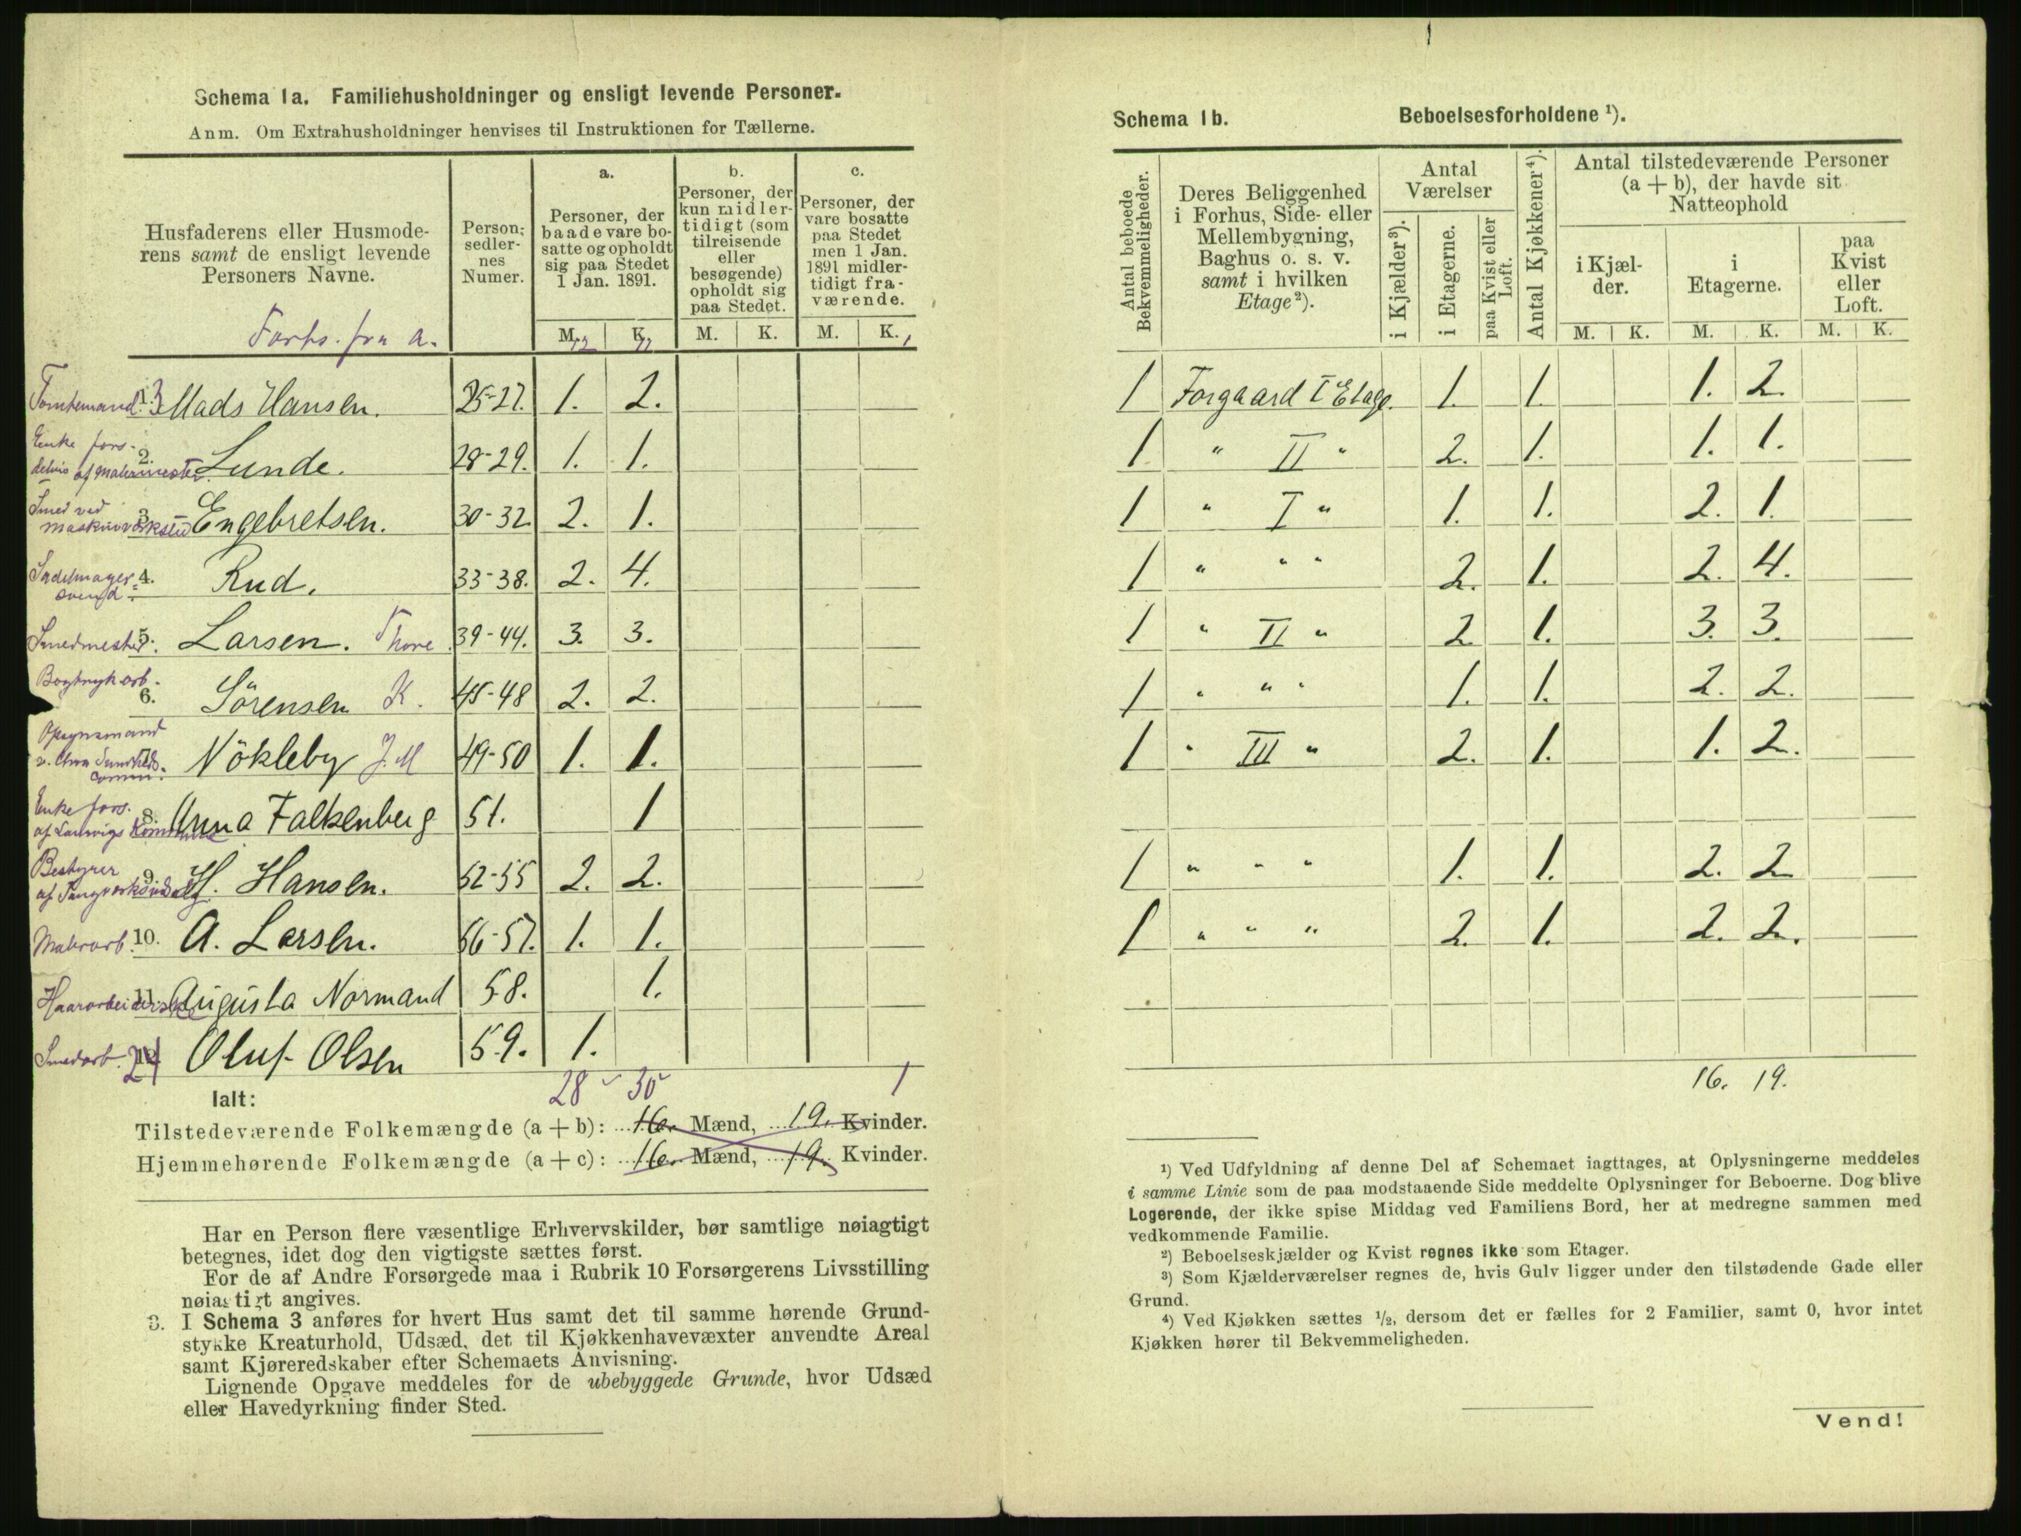 Schema 1a. Familiehusholdninger og ensligt levende Personer.
Anm. Om Extrahusholdninger henvises til Instruktionen for Tællerne.
Husfaderens eller Husmoderens samt de ensligt levende Personers Navne.
Forts. fra a.
Person-sedlernes Numer.
a.
Personer, der baade vare bosatte og opholdt sig paa Stedet 1 Jan. 1891.
M. K.
12 11
b.
Personer, der kun midlertidigt (som tilreisende eller besøgende) opholdt sig paa Stedet.
M. K.
c.
Personer, der vare bosatte paa Stedet men 1 Jan. 1891 midlertidigt fraværende.
M. K. 1
Tomtemand 1. 3 Mads Hansen. 25-27. 1. 2.
Enke fors. delvis af malermester 2. Lunde. 28-29. 1. 1.
Smed ved 3. Engebretsen. 30-32. 2. 1.
Sadelmager svend 4. Rud. 33-38. 2. 4.
Smedmester 5. Larsen. Thore 39-44. 3. 3.
Bogtrykarb. 6. Sörensen K. 45-48 2. 2.
Opsynsmand 7. Nökleby J. M 49-50 1. 1.
Enke fors. af Laurvigs Kommune 8. Anna Falkenberg 51. 1
Bestyrer 9. H. Hansen. 52-55 2. 2.
Malerarb. 10. A. Larsen. 56-57. 1. 1.
Haararbeiderske 11. Augusta Normand 58. 1.
Smedarb. 24 Oluf Olsen 59. 1.
Ialt: 28 30 1
Tilstedeværende Folkemængde (a + b): 16. Mænd, 19. Kvinder.
Hjemmehørende Folkemængde (a + c): 16. Mænd, 19. Kvinder.
Har en Person flere væsentlige Erhvervskilder, bør samtlige nøiagtigt
betegnes, idet dog den vigtigste sættes først.
For de af Andre Forsørgede maa i Rubrik 10 Forsørgerens Livsstilling
nøiagtigt angives.
3. I Schema 3 anføres for hvert Hus samt det til samme hørende Grund-
stykke Kreaturhold, Udsæd, det til Kjøkkenhavevæxter anvendte Areal
samt Kjøreredskaber efter Schemaets Anvisning.
Lignende Opgave meddeles for de ubebyggede Grunde, hvor Udsæd
eller Havedyrkning finder Sted.
Schema 1b. Beboelsesforholdene ¹).
Antal beboede Bekvemmeligheder.
Deres Beliggenhed i Forhus, Side- eller Mellembygning, Baghus o. s. v. samt i hvilken Etage²).
Antal Værelser
i Kjælder³).
i Etagerne.
paa Kvist eller Loft.
Antal Kjøkkener⁴).
Antal tilstedeværende Personer (a + b), der havde sit Natteophold
i Kjælder.
i Etagerne.
paa Kvist eller Loft.
M. K. M. K. M. K.
1 Forgaard I Etage. 1. 1. 1. 2.
1 " II " 2. 1. 1. 1.
1 " I " 1. 1. 2. 1.
1 " " " 2. 1. 2. 4.
1 " II " 2 1. 3. 3.
1 " " " 1. 1. 2. 2.
1 " III " 2. 1. 1. 2.
1 " " " 1. 1. 2. 2
1 " " " 2. 1. 2. 2.
16. 19.
¹) Ved Udfyldning af denne Del af Schemaet iagttages, at Oplysningerne meddeles
i samme Linie som de paa modstaaende Side meddelte Oplysninger for Beboerne. Dog blive
Logerende, der ikke spise Middag ved Familiens Bord, her at medregne sammen med
vedkommende Familie.
²) Beboelseskjælder og Kvist regnes ikke som Etager.
³) Som Kjælderværelser regnes de, hvis Gulv ligger under den tilstødende Gade eller
Grund.
⁴) Ved Kjøkken sættes ½, dersom det er fælles for 2 Familier, samt 0, hvor intet
Kjøkken hører til Bekvemmeligheden.
Vend!